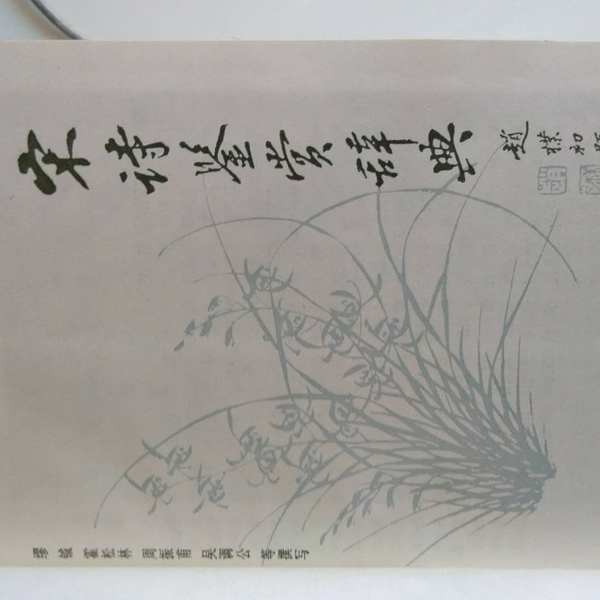 宋诗鉴赏辞典
赵樸初题
缪钺 霍松林 周振甫 吴调公 等撰写